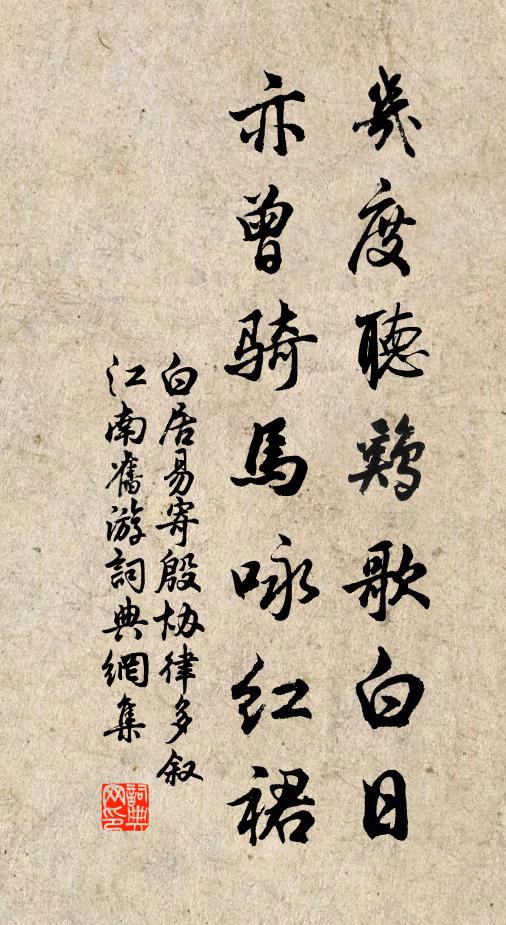 幾度聽鷄歌白日
亦曾騎馬咏紅裙
白居易寄殷协律多叙
江南舊游詞典網集
詞典网印